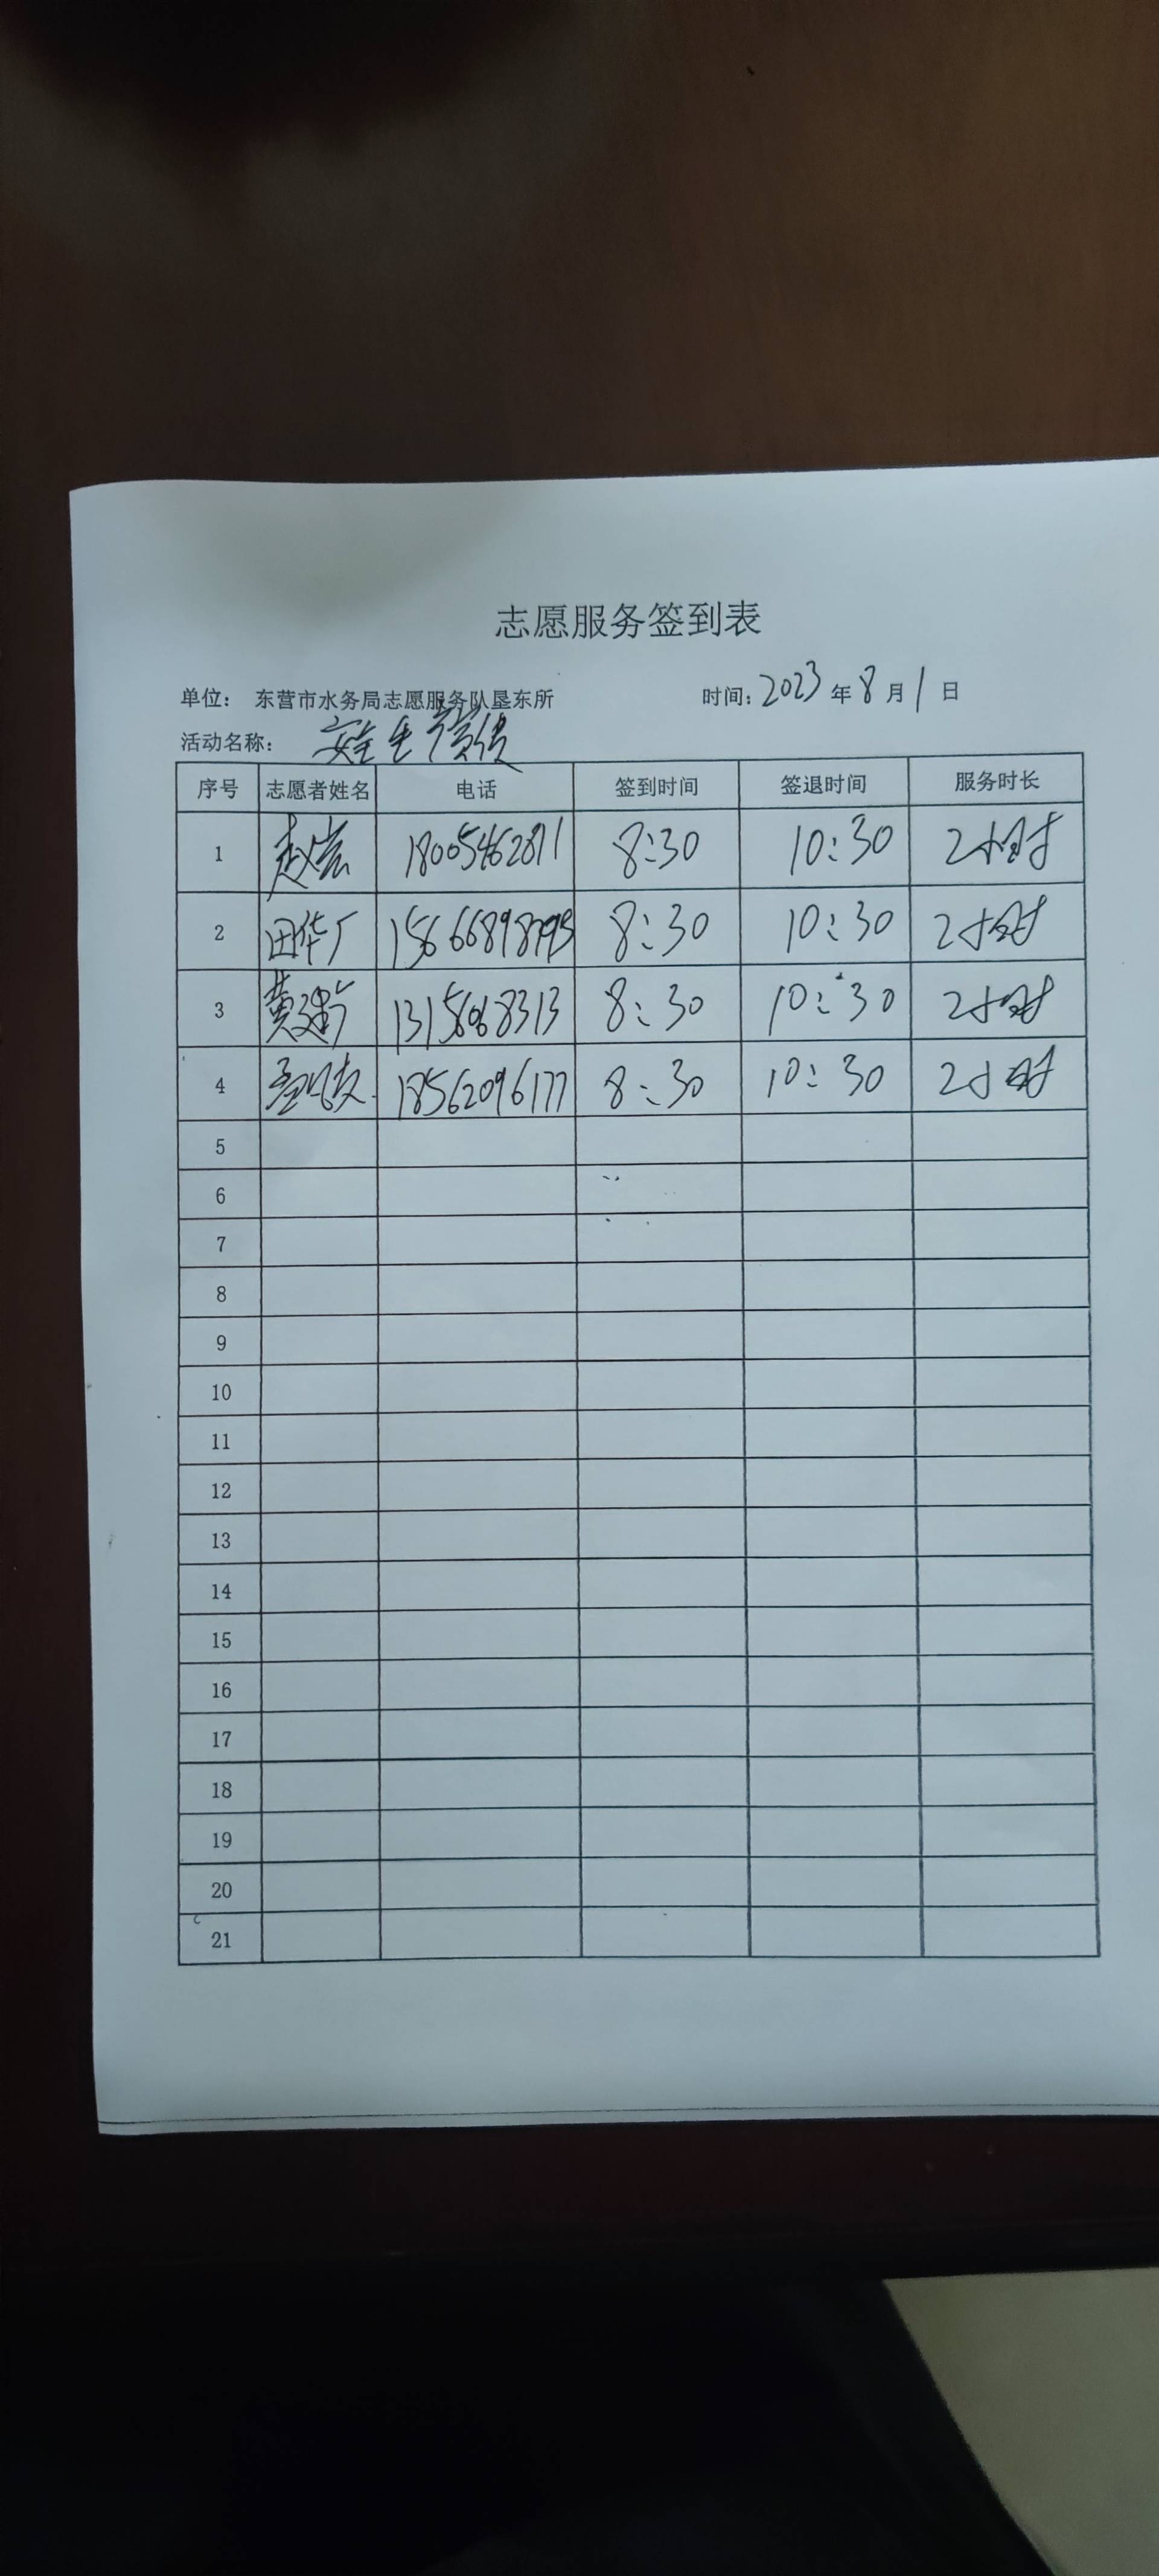 志愿服务签到表
单位： 东营市水务局志愿服务队垦东所 时间：2023年8月1日
活动名称： 安全生产宣传
序号 志愿者姓名 电话 签到时间 签退时间 服务时长
1 赵岩 18005462871 8:30 10:30 2小时
2 田华广 8:30 10:30 2小时
3 黄建广 8:30 10:30 2小时
4 18562096177 8:30 10:30 2小时
5
6
7
8
9
10
11
12
13
14
15
16
17
18
19
20
21